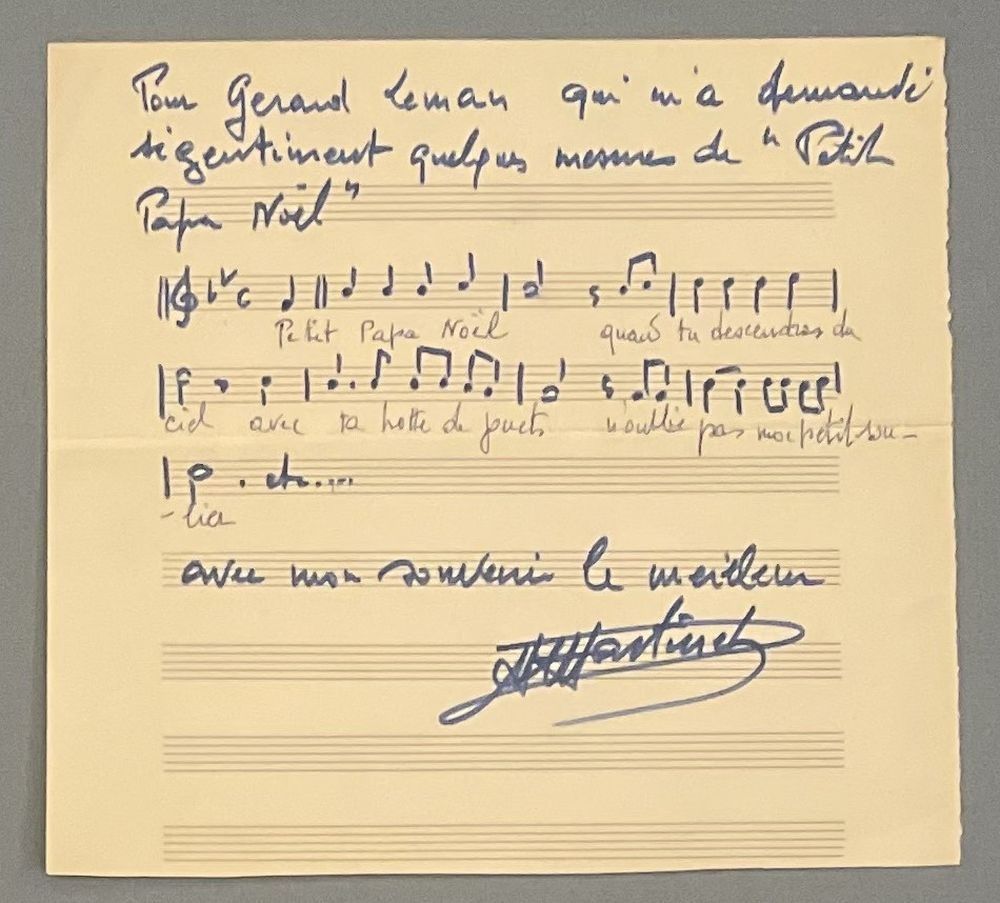 Pour Gerard Leman qui m'a demandé
si gentiment quelques mesures de "Petit
Papa Noël"
Petit Papa Noël quand tu descendras du
ciel avec ta hotte de jouets n'oublie pas mon petit sou-
-lier etc....
avec mon souvenir le meilleur
HMartinet